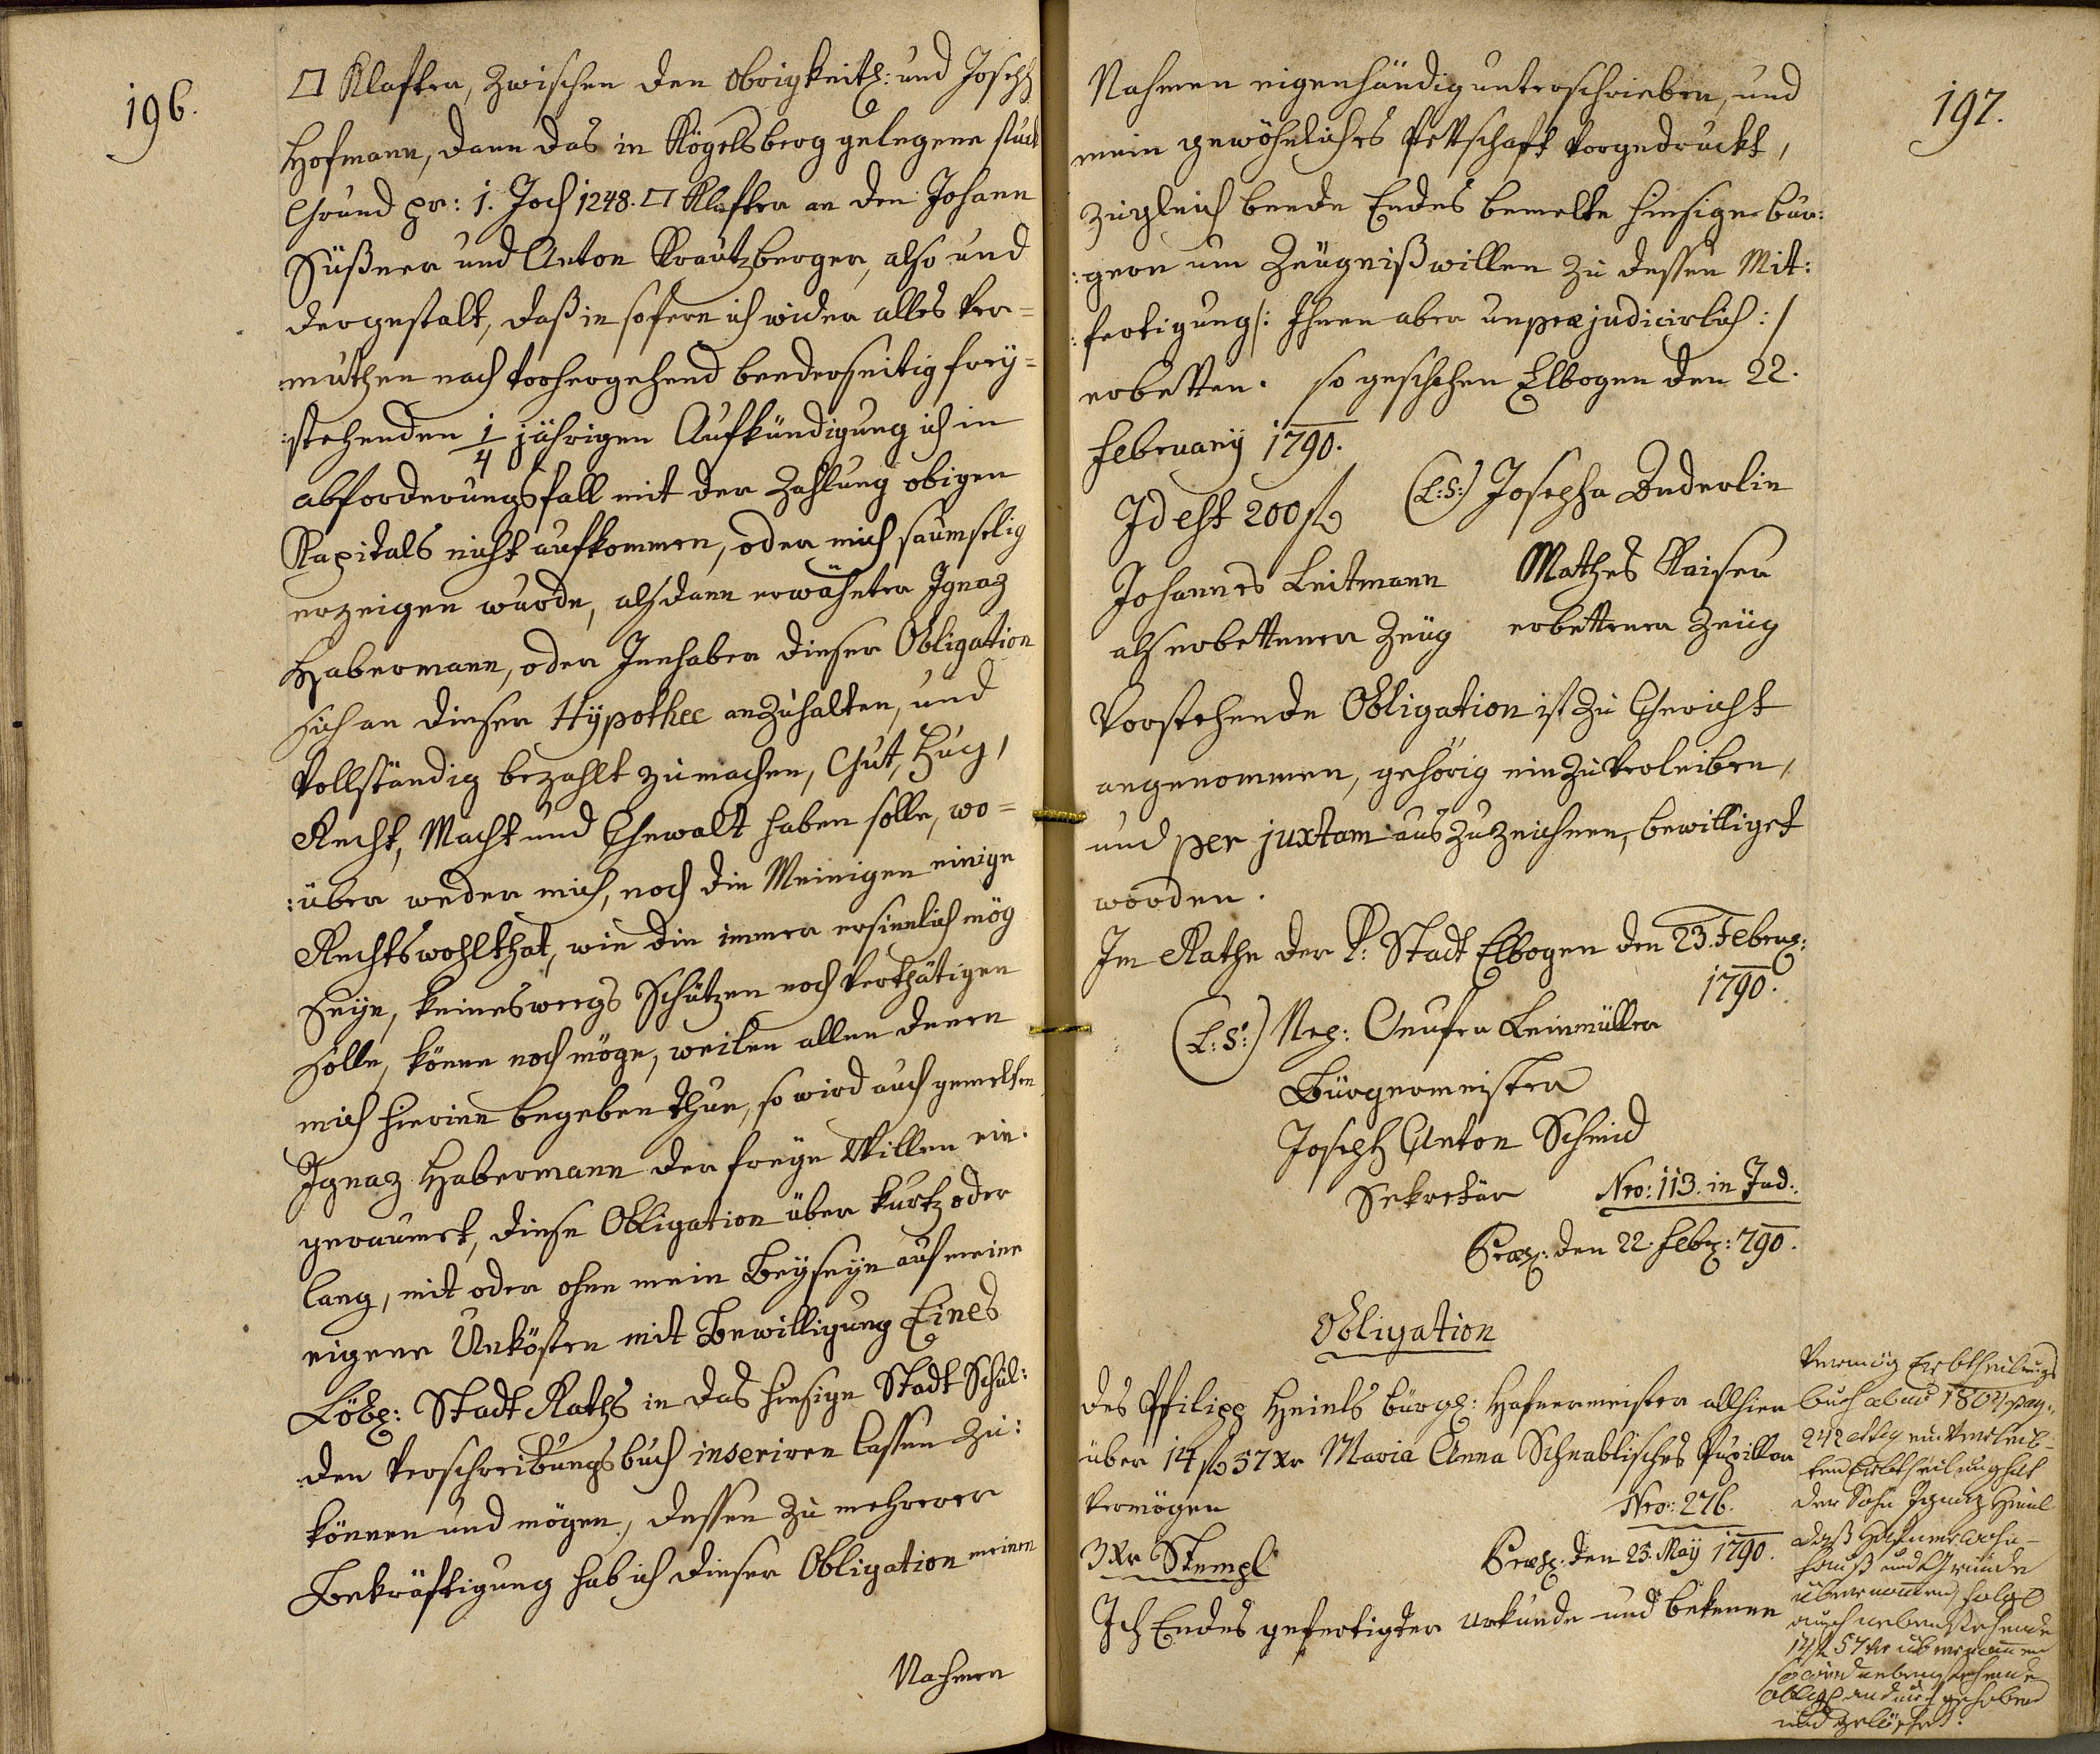 196.
□ Klafter, zwischen den Obrigkeitl: und Joseph
Hofmann, dann das in Kögelsberg gelegene stuck
Grund pr: 1. Joch 1248. □ Klafter an den Johann
Süßner und Anton Krautzberger, also und
dergestalt, daß in sofern ich wider alles Ver=
:muthen nach vorhergehend beederseitig frey=
:stehenden 1/4 jährigen Aufkündigung ich in
abforderungsfall mit der Zahlung obigen
Kapitals nicht aufkommen, oder mich saumselig
erzeigen wurde, alsdann erwähnter Ignaz
Habermann, oder Innhaber dieser Obligation
sich an dieser Hÿpothec anzuhalten, und
vollständig bezahlt zu machen, Gut, Fug,
Recht, Macht und Gewalt haben solle, wo=
:über weder mich, noch die Meinigen einige
Rechtswohlthat, wie die immer ersinnlich mög
seyn, keineswegs schützen noch verthätigen
solle, könne noch möge, weilen allen denen
mich hierinn begeben thue, so wird auch gemelten
Ignaz Habermann der freye Willen ein:
geraumet, diese Obligation über kurtz oder
lang, mit oder ohne mein Beyseyn auf meine
eigene Unkösten mit Bewilligung Eines
Löbl: Stadt Raths in das hiesige Stadt Schul:
:den Verschreibungsbuch inseriren lassen zu:
können und mögen, dessen zu mehrerer
Bekräftigung hab ich dieser Obligation meinen
Nahmen
197.
Nahmen eigenhändig unterschrieben, und
mein gewöhnliches Pettschaft vorgedruckt,
zugleich beede Endes bemelte hiesige bur:
:gere um Zeugnißwillen zu dessen Mit:
:fertigung /: Ihnen aber unpræjudicirlich :/
erbetten. so geschehen Elbogen den 22.
Februarÿ 1790.
Id est 200 fl (L:S:) Josepha Enderlin
Johannes Leitmann Mathes Kaiser
als erbettener Zeug erbettener Zeug
Vorstehende Obligation ist zu Gericht
angenommen, gehörig einzuverleiben,
und per juxtam auszuzeichnen, bewilliget
worden.
Im Rathe der K: Stadt Elbogen den 23. Febru:
1790.
(L:S:) Nep: Onufer Leinmüller
Bürgermeister
Joseph Anton Schmid
Sekretär Nro: 113. in Jud:
Præs: den 22. Febr: 790.
Obligation
des Philipp Heinls bürgl: Hafnermeister allhier
über 14 fl 57 Xr Maria Anna Schnablisches Pupillar
Vermögen
Nro: 276.
3 Xr Stempl Præs: den 25. Maÿ 1790.
Ich Endes gefertigter urkunde und bekenne
Vermög Erbtheilungs
buch de anno 1804 pag:
242 einverleib-
ten Erbtheilung hat
der Sohn Ignaz Heinl
daß Hafnerwohn-
hauß und Gründe
übernommen, folgl
auch nebenstehende
14 fl 57 Xr übernommen
so wird nebenstehende
oblig: andurch gehoben
und gelöschet.